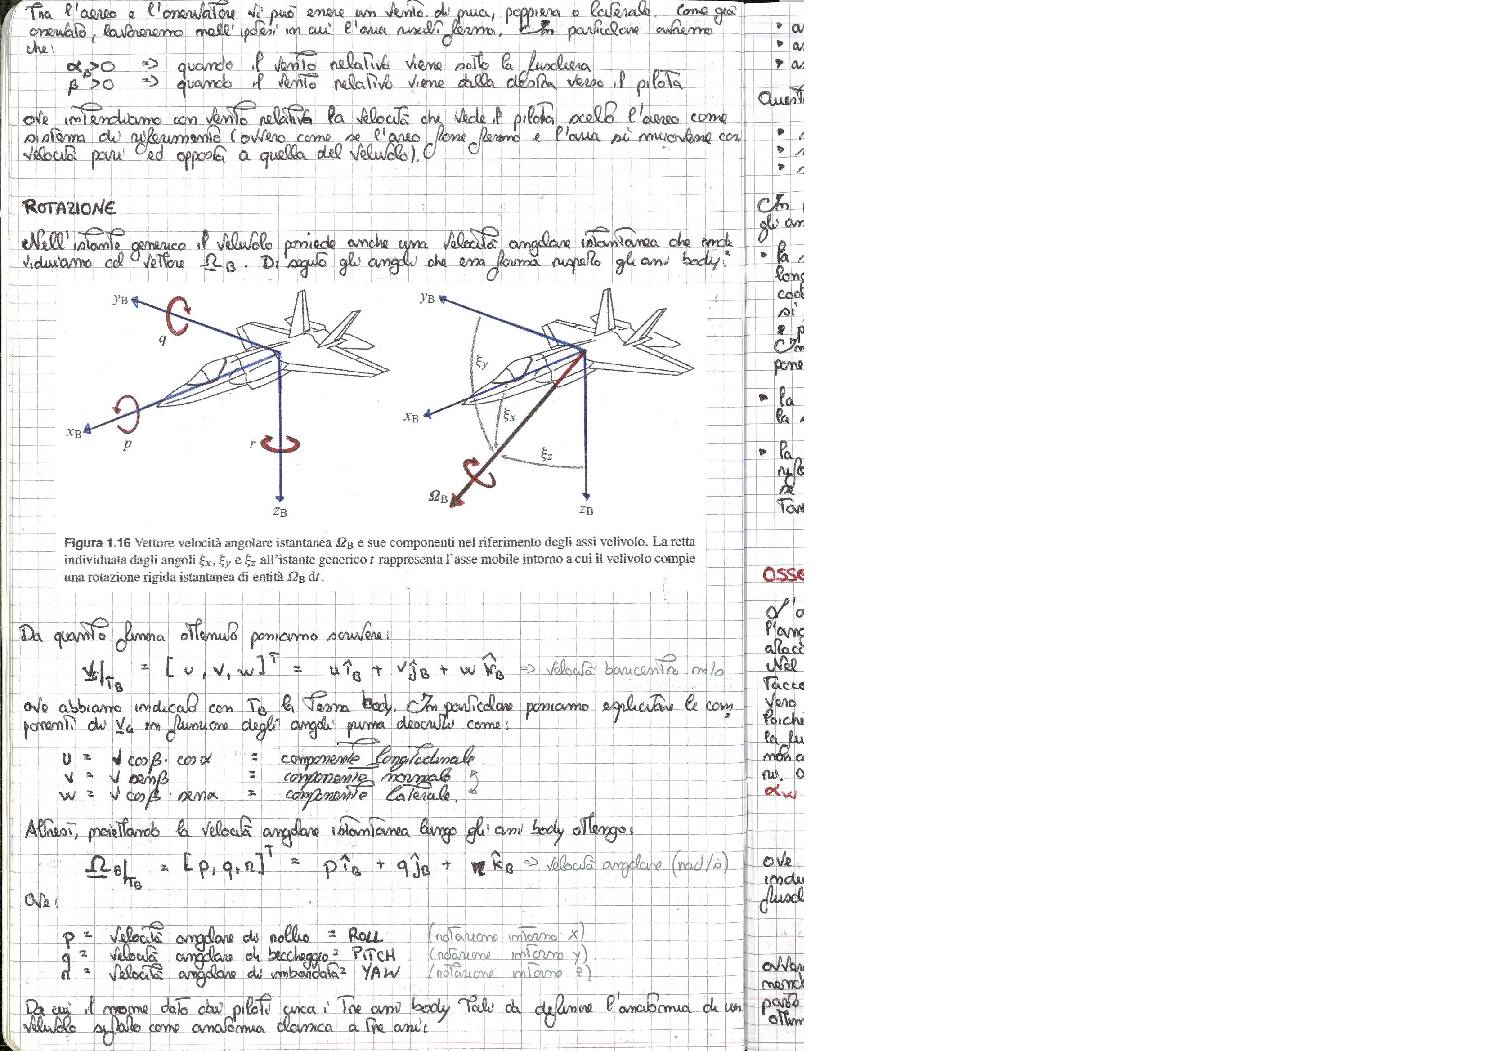 Tra l'aereo e l'osservatore vi può essere un vento di prua, poppiera o laterale. Come già
osservato, lavoreremo nell'ipotesi in cui l'aria risulti ferma. In particolare avremo
che:
α_B>0 => quando il vento relativo viene sotto la fusoliera
β >0 => quando il vento relativo viene dalla destra verso il pilota
ove intendiamo con vento relativo la velocità che vede il pilota scelto l'aereo come
sistema di riferimento (ovvero come se l'aereo fosse fermo e l'aria si muovesse con
velocità pari ed opposta a quella del velivolo).
ROTAZIONE
Nell'istante generico il velivolo possiede anche una velocità angolare istantanea che indi
viduiamo col vettore Ω_B. Di seguito gli angoli che essa forma rispetto gli assi body:
yB
q
xB
p
r
zB
yB
ξy
xB
ξx
ξz
ΩB
zB
Figura 1.16 Vettore velocità angolare istantanea ΩB e sue componenti nel riferimento degli assi velivolo. La retta
individuata dagli angoli ξx, ξy e ξz all'istante generico t rappresenta l'asse mobile intorno a cui il velivolo compie
una rotazione rigida istantanea di entità ΩB dt.
Da quanto finora ottenuto possiamo scrivere:
V_G|_TB = [u, v, w]^T = u î_B + v ĵ_B + w k̂_B => velocità baricentro m/s
ove abbiamo indicato con T_B la terna body. In particolare possiamo esplicitare le com
ponenti di V_G in funzione degli angoli prima descritti come:
u = V cosβ · cosα = componente longitudinale
v = V senβ = componente normale
w = V cosβ · senα = componente laterale.
Altresì, proiettando la velocità angolare istantanea lungo gli assi body ottengo:
Ω_B|_TB = [p, q, r]^T = p î_B + q ĵ_B + r k̂_B => velocità angolare (rad/s)
Ove:
p = velocità angolare di rollio = ROLL (rotazione intorno x)
q = velocità angolare di beccheggio = PITCH (rotazione intorno y)
r = velocità angolare di imbardata = YAW (rotazione intorno z)
Da cui il nome dato dai piloti circa i tre assi body tali da definire l'anatomia di un
velivolo siffatto come anatomia classica a tre assi: